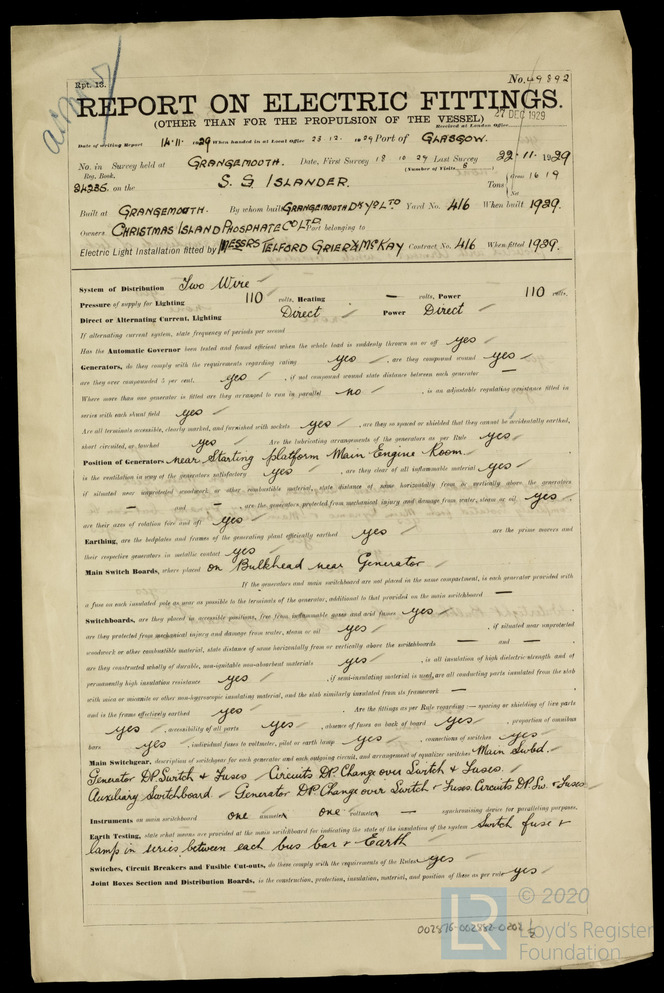 Rpt. 13.
No. 49892
REPORT ON ELECTRIC FITTINGS.
(OTHER THAN FOR THE PROPULSION OF THE VESSEL)
27 DEC 1929
Received at London Office
Date of writing Report 14.11.1929 When handed in at Local Office 23.12.1929 Port of GLASGOW.
No. in Survey held at GRANGEMOUTH. Date, First Survey 18 10 29 Last Survey 22.11.1929
Reg. Book.
(Number of Visits 8)
on the S.S ISLANDER.
Tons Gross 1619
Net
Built at GRANGEMOUTH. By whom built GRANGEMOUTH DKYD CO LTD Yard No. 416 When built 1929.
Owners CHRISTMAS ISLAND PHOSPHATE CO LTD Port belonging to
Electric Light Installation fitted by MESSRS TELFORD GRIER & McKAY Contract No. 416 When fitted 1929.
System of Distribution Two Wire
Pressure of supply for Lighting 110 volts, Heating — volts, Power 110 volts.
Direct or Alternating Current, Lighting Direct Power Direct
If alternating current system, state frequency of periods per second
Has the Automatic Governor been tested and found efficient when the whole load is suddenly thrown on or off yes
Generators, do they comply with the requirements regarding rating yes, are they compound wound yes
are they over compounded 5 per cent. yes, if not compound wound state distance between each generator —
Where more than one generator is fitted are they arranged to run in parallel no, is an adjustable regulating resistance fitted in
series with each shunt field yes
Are all terminals accessible, clearly marked, and furnished with sockets yes, are they so spaced or shielded that they cannot be accidentally earthed,
short circuited, or touched yes Are the lubricating arrangements of the generators as per Rule yes
Position of Generators near Starting platform Main Engine Room.
is the ventilation in way of the generators satisfactory yes, are they clear of all inflammable material yes
if situated near unprotected woodwork or other combustible material, state distance of same horizontally from or vertically above the generators
— and —, are the generators protected from mechanical injury and damage from water, steam or oil yes
are their axes of rotation fore and aft yes
Earthing, are the bedplates and frames of the generating plant efficiently earthed yes are the prime movers and
their respective generators in metallic contact yes
Main Switch Boards, where placed on Bulkhead near Generator
If the generators and main switchboard are not placed in the same compartment, is each generator provided with
a fuse on each insulated pole as near as possible to the terminals of the generator, additional to that provided on the main switchboard —
Switchboards, are they placed in accessible positions, free from inflammable gases and acid fumes yes
are they protected from mechanical injury and damage from water, steam or oil yes, if situated near unprotected
woodwork or other combustible material, state distance of same horizontally from or vertically above the switchboards — and —
are they constructed wholly of durable, non-ignitable non-absorbent materials yes, is all insulation of high dielectric strength and of
permanently high insulation resistance yes, if semi-insulating material is used, are all conducting parts insulated from the slab
with mica or micanite or other non-hygroscopic insulating material, and the slab similarly insulated from its framework —
and is the frame effectively earthed yes Are the fittings as per Rule regarding — spacing or shielding of live parts
yes, accessibility of all parts yes, absence of fuses on back of board yes, proportion of omnibus
bars yes, individual fuses to voltmeter, pilot or earth lamp yes, connections of switches yes
Main Switchgear, description of switchgear for each generator and each outgoing circuit, and arrangement of equalizer switches Main Swbd.
Generator D.P. Switch & Fuses Circuits D.P. Change over Switch & Fuses.
Auxiliary Switchboard Generator D.P. Change over Switch & Fuses. Circuits D.P. Sw. & Fuses
Instruments on main switchboard one ammeter one voltmeter — synchronising device for paralleling purposes.
Earth Testing, state what means are provided at the main switchboard for indicating the state of the insulation of the system Switch fuse &
lamp in series between each bus bar & Earth
Switches, Circuit Breakers and Fusible Cut-outs, do these comply with the requirements of the Rules yes
Joint Boxes Section and Distribution Boards, is the construction, protection, insulation, material, and position of these as per rule yes
002876-002882-0202 1/2
LR
© 2020
Lloyd's Register
Foundation